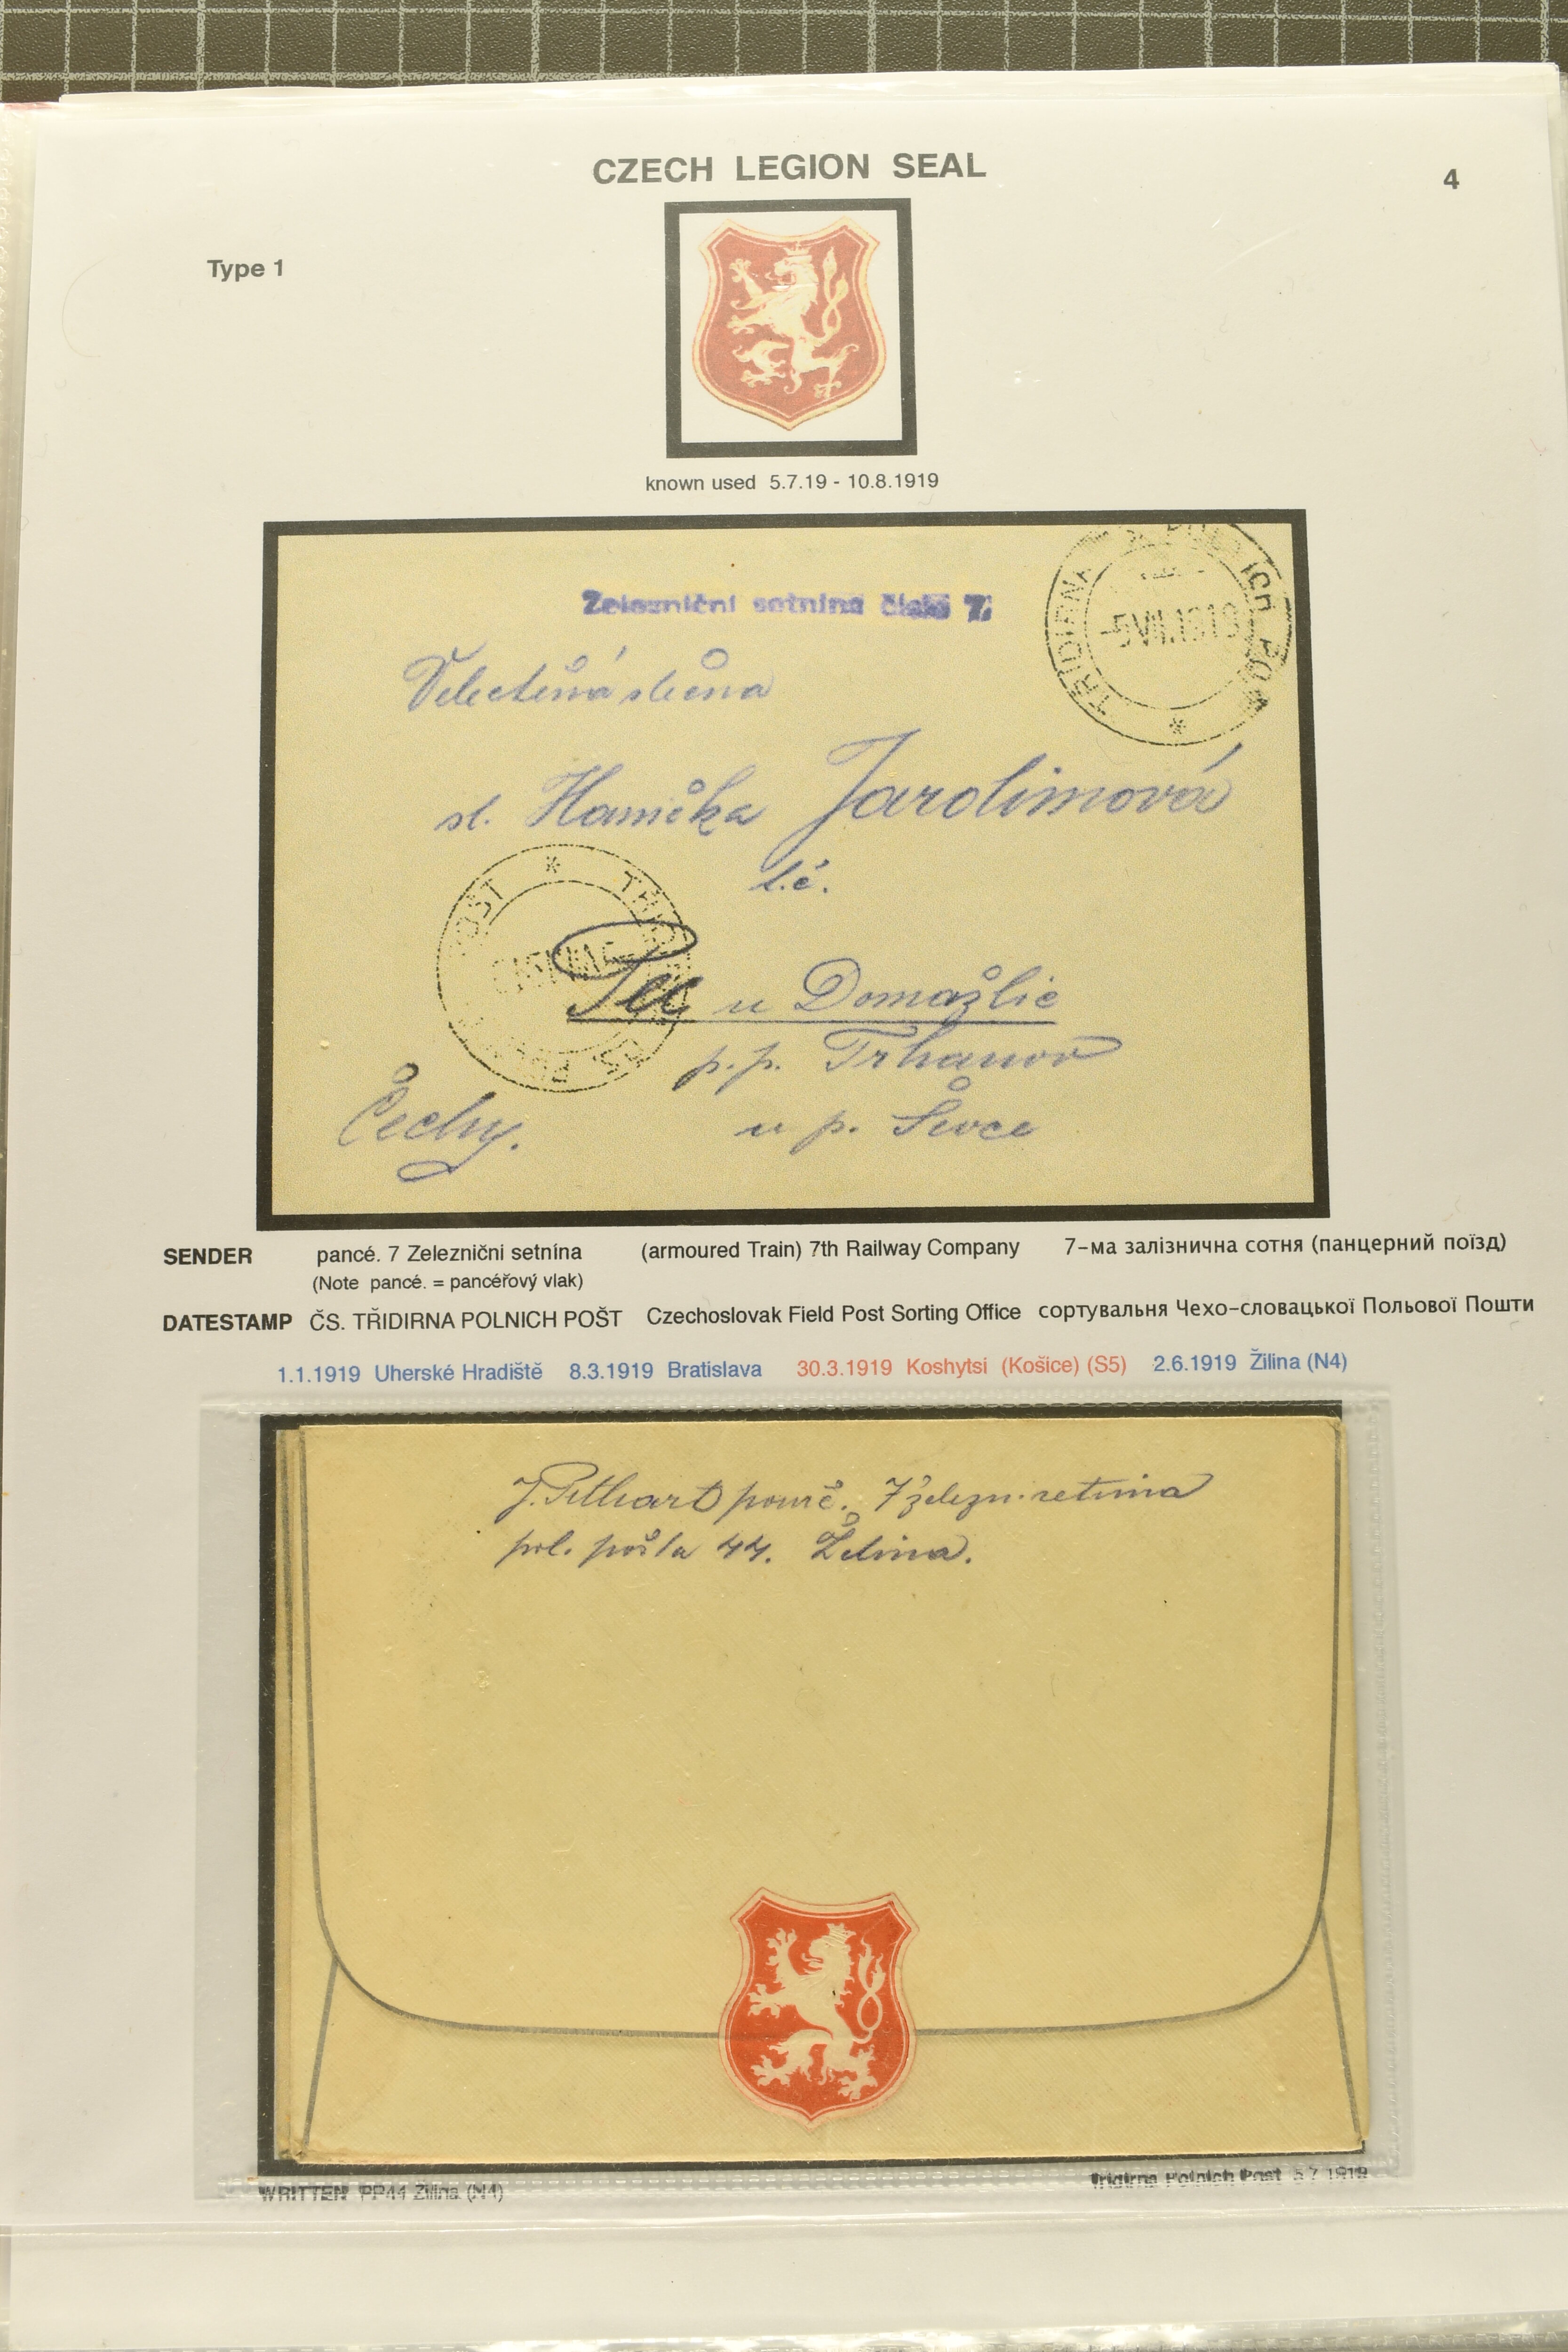 CZECH LEGION SEAL
4
Type 1
known used 5.7.19 - 10.8.1919
Zelezniční setnina číslo 7.
TŘÍDIRNA
-5 VII.1919
Velectěná slečna
sl. Hanička Jarolimová
t.č.
POŠT
Pec u Domažlic
p.p. Trhanov
Čechy.
u p. Ševce
SENDER pancé. 7 Zelezniční setnína (armoured Train) 7th Railway Company 7-ма залізнична сотня (панцерний поїзд)
(Note pancé. = pancéřový vlak)
DATESTAMP ČS. TŘIDIRNA POLNICH POŠT Czechoslovak Field Post Sorting Office сортувальня Чехо-словацької Польової Пошти
1.1.1919 Uherské Hradiště 8.3.1919 Bratislava 30.3.1919 Koshytsi (Košice) (S5) 2.6.1919 Žilina (N4)
J. Pithart 7 železn. setnina
pol. pošta 44. Žilina.
WRITTEN PP44 Zilina (N4)
Tridirna Polnich Post 5 7 1919